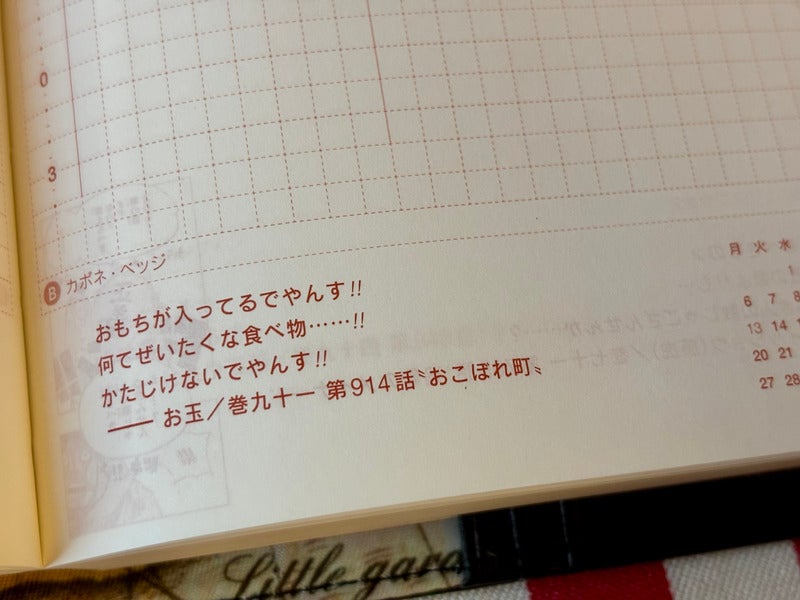 0
3
B カポネ・ベッジ
おもちが入ってるでやんす!!
何てぜいたくな食べ物……!!
かたじけないでやんす!!
—— お玉／巻九十一 第914話〝おこぼれ町〟
月 火 水
1
6 7 8
13 14
20 21
27 28
Little gar